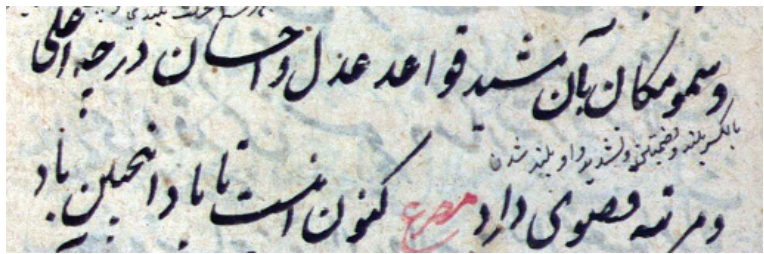 وسمو مکان بآن مشید قواعد عدل و احسان درجه اعلی
بالکسر بلند و بضمتین و تشدید واو بلند شدن
و مرتبه قصوی دارد مصرع کنون انست تا بادا بحین باد